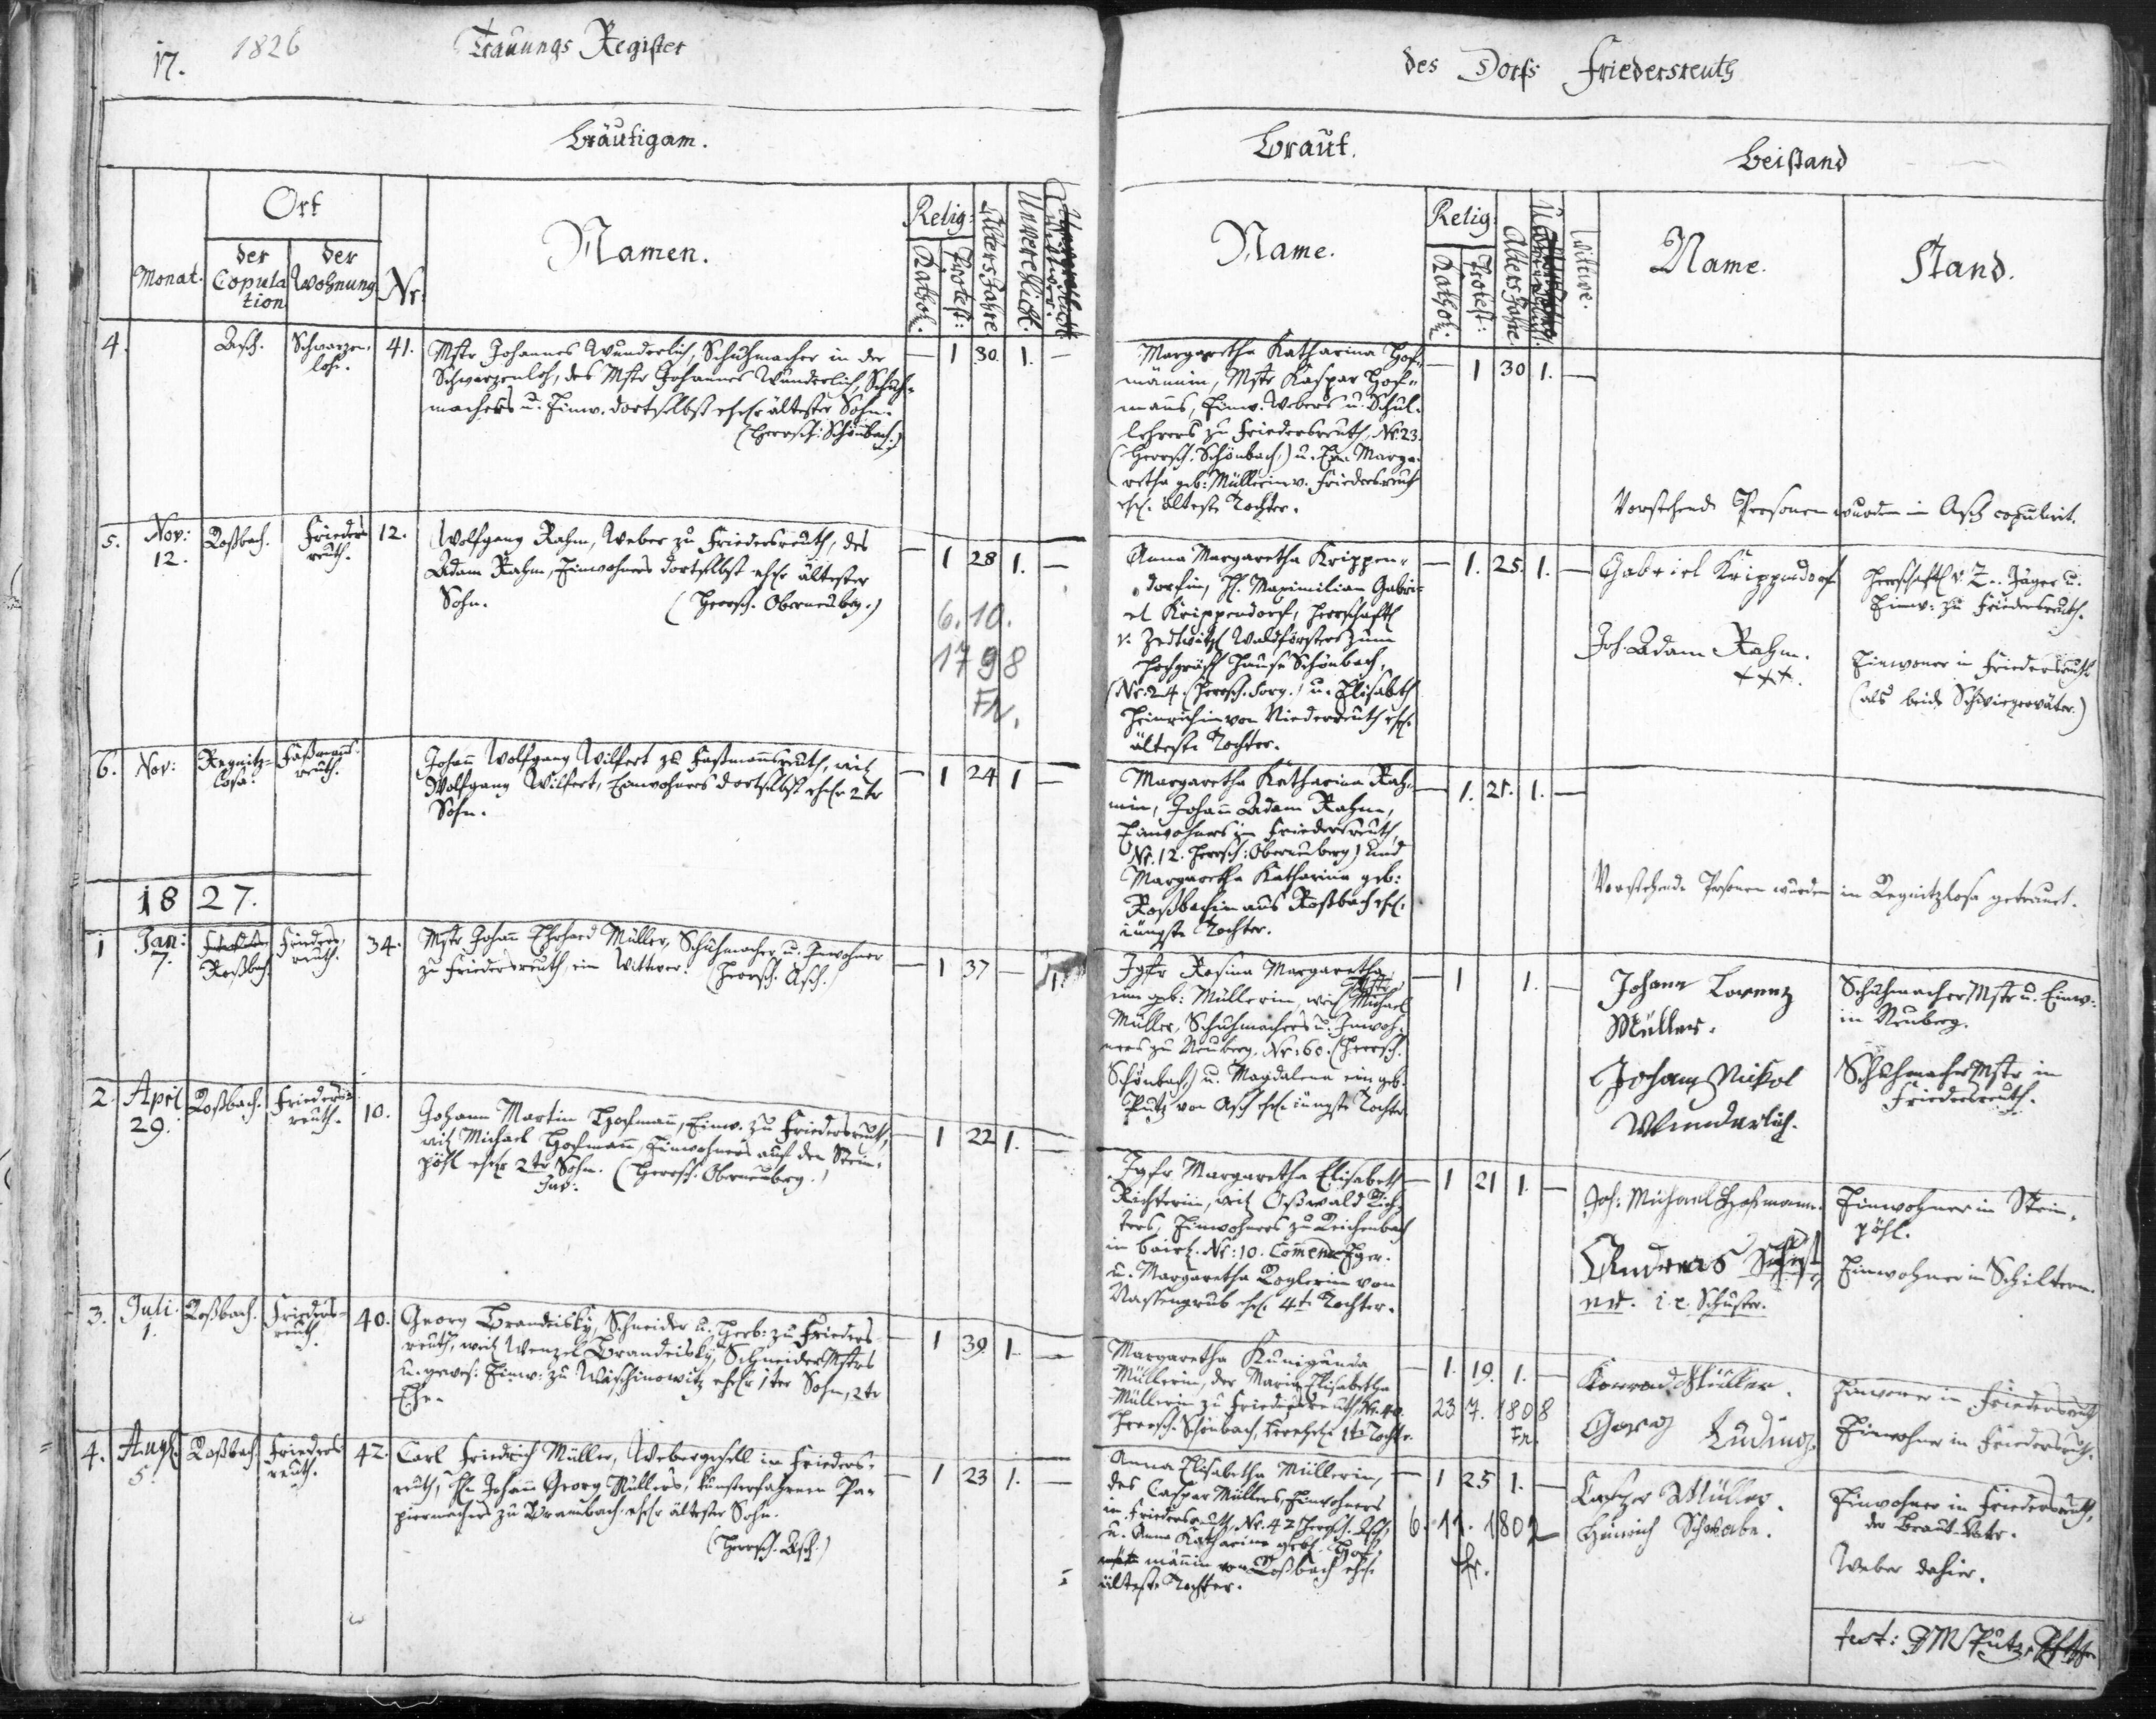 17.
1826
Trauungs Register
des Dorfs Friedersreuth
Bräutigam.
Braut.
Beistand
Monat.
Ort
der Copula
tion
der
Wohnung
Nr:
Namen.
Relig:
Kathol.
Protest:
Alters Jahre
Unverehlicht.
Name.
Relig:
Kathol:
Protest:
Alters Jahre
Wittwe.
Name.
Stand.
4.
Asch.
Schwarzen-
loh.
41.
Mstr Johannes Wunderlich, Schuhmacher in der
Schwarzenloh, des Mstr Johannes Wunderlich, Schuh-
machers u. Einw. dortselbst ehel. ältester Sohn.
(Herrsch: Schönbach.)
— 1 30. 1. —
Margaretha Katharina Hof-
männin, Mstr Kaspar Hof-
manns, Einw. Webers u. Schul-
lehrers zu Friedersreuth, Nr. 23.
(Herrsch. Schönbach,) u. Eva Marga-
retha geb: Müllerin v. Friedersreuth
ehel. älteste Tochter.
— 1 30 1. —
Vorstehende Personen wurden in Asch copulirt.
5.
Nov:
12.
Roßbach.
Frieders
reuth.
12.
Wolfgang Rahm, Weber zu Friedersreuth, des
Adam Rahm, Einwohners dortselbst ehel. ältester
Sohn. (Herrsch. Oberneuberg.)
— 1 28 1. —
6. 10.
1798
Fr.
Anna Margaretha Krippen-
dorfin, H. Maximilian Gabri-
el Krippendorf, herrschaftl
v. Zedtwitz Waldförsters zum
Hause Schönbach,
(Nr: 24. Herrsch. Sorg.) u. Elisabeth
Heinrichin von Niederreuth ehel.
älteste Tochter.
— 1. 25. 1. —
Gabriel Krippendorf
herrschaftl v. Z.. Jäger u.
Einw: zu Friedersreuth.
Joh. Adam Rahm.
+++.
Einwoner in Friedersreuth
(als beide Schwiegerväter.)
6.
Nov:
Regnitz-
losa.
Faßmanns-
reuth.
Johann Wolfgang Wilfert zu Faßmannsreuth, weil
Wolfgang Wilfert, Einwohners dortselbst ehel. 2tr
Sohn.
— 1 24 1 —
Margaretha Katharina Rah-
min, Johann Adam Rahm,
Einwohners in Friedersreuth,
Nr. 12. Herrsch: Oberneuberg) und
Margaretha Katharina geb:
Roßbachin aus Roßbach ehel.
jüngste Tochter.
— 1. 21. 1. —
Vorstehende Personen wurden in Regnitzlosa getraut.
1827.
1
Jan:
7.
Roßbach.
Frieders
reuth.
34.
Mstr Johann Erhard Müller, Schuhmacher u. Inwohner
zu Friedersreuth, ein Wittwer. (Herrsch. Asch.)
— 1 37 — 1.
Jgfr Rosina Margaretha
eine geb: Müllerin, weil Mstr Michael
Müller, Schuhmachers u. Inwoh-
ners zu Neuberg, Nr: 60. (Herrsch.
Schönbach,) u. Magdalena ein geb.
Putz von Asch ehel. jüngste Tochter
— 1 1. —
Johann Lorenz
Müller.
Schuhmacher Mstr u. Einw:
in Neuberg.
Johann Nikol
Wunderlich.
Schuhmacher Mstr in
Friedersreuth.
2.
April
29.
Roßbach.
Frieders-
reuth.
10.
Johann Martin Hofmann, Einw. zu Friedersreuth,
weil Michael Hofmann, Einwohners auf den Stein-
pöhl ehel. 2tr Sohn. (Herrsch. Oberneuberg.)
— 1 22 1. —
Jgfr Margaretha Elisabeth
Richterin, weil Oßwald Rich-
ters, Einwohners zu Reichenbach
in Nr: 10. Comende Eger.
u. Margaretha Roglerin von
Nassengrub ehel. 4te Tochter.
— 1 21 1. —
Joh: Michael Hofmann.
Einwohner in Stein-
pöhl.
Andreas
i. e. Schuster.
Einwohner in Schiltern.
3.
Juli
1.
Roßbach.
Frieders-
reuth.
40.
Georg Brandeisky, Schneider u. Herb: zu Frieders-
reuth, weil Wenzel Brandeisky, Schneider Mstrs
u. gewes: Einw: zu Wischinowitz ehel. 1ter Sohn, 2tr
Ehe.
— 1 39 1. —
Margaretha Kunigunda
Müllerin, der Maria Elisabetha
Müllerin zu Friedersreuth, Nr. 40.
Herrsch. Schönbach, 1te Tochter.
— 1. 19. 1. —
23 7. 1808
Fr.
Konrad Müller.
Einwoner in Friedersreuth
Georg Luding.
Einwohner in Friedersreuth.
4.
Augl.
5.
Roßbach.
Frieders
reuth.
42.
Carl Friedrich Müller, Webergesell in Frieders-
reuth, Johann Georg Müllers, kunsterfahrnen Pa-
piermachers zu Brambach ehel. ältester Sohn.
(Herrsch. Asch.)
— 1 23 1. —
Anna Elisabetha Müllerin,
des Caspar Müllers, Einwohners
in Friedersreuth, Nr. 42 Herrsch. Asch,
u. Anna Katharina geb. Hof-
männin von Roßbach ehel.
älteste Tochter.
— 1 25 1. —
6. 11. 1802
Fr.
Casper Müller.
Einwohner in Friedersreuth,
der Braut Vater.
Heinrich Schwabe.
Weber dahier.
test: Putz,